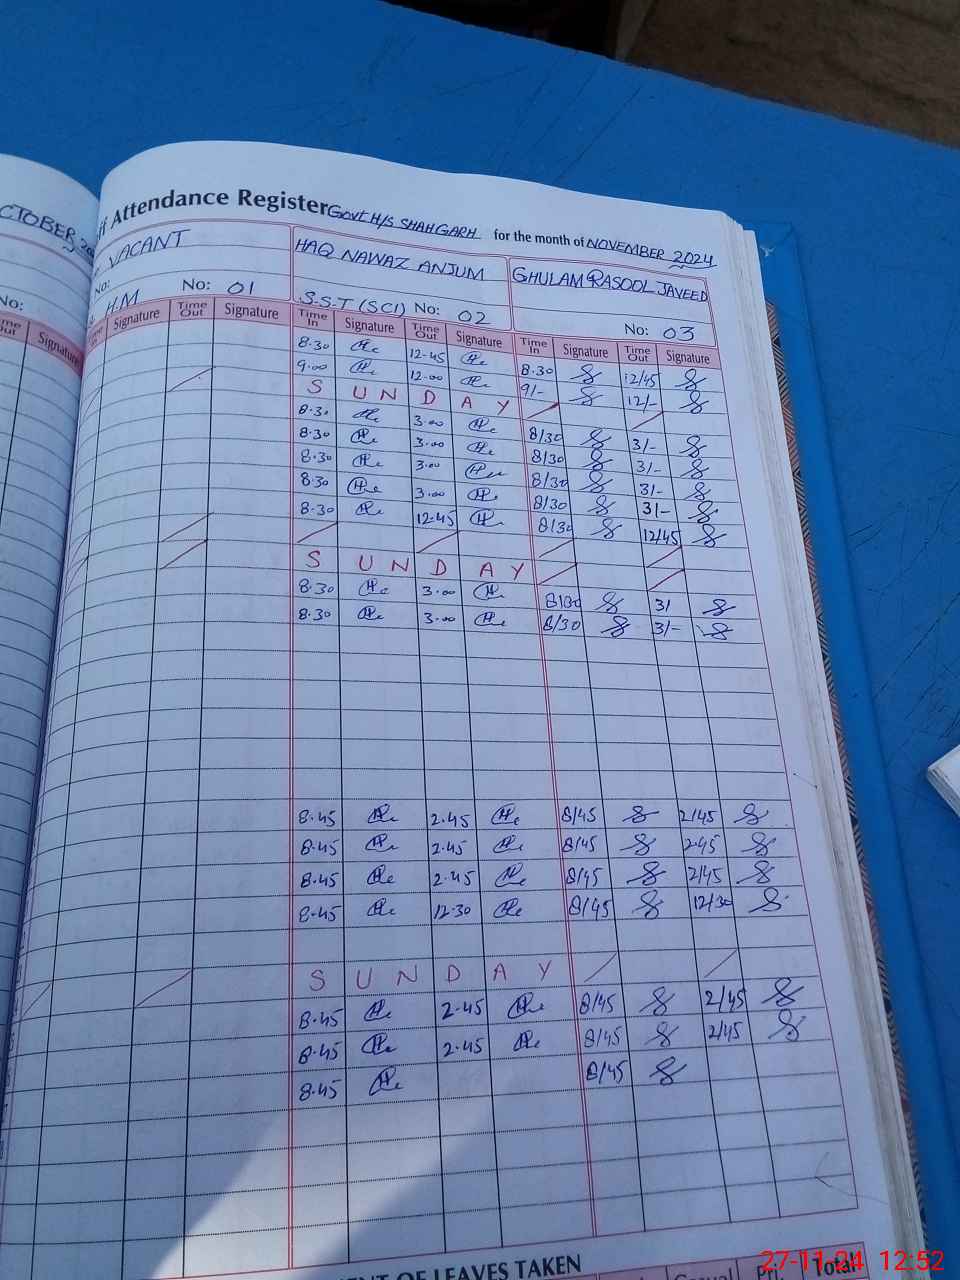 CTOBER 20
ff Attendance Register Govt H/S SHAHGARH for the month of NOVEMBER 2024
VACANT HAQ NAWAZ ANJUM GHULAM RASOOL JAVEED
No:
H.M No: 01 S.S.T (SCI) No: 02 No: 03
Signature Time Out Signature Time In Signature Time Out Signature Time In Signature Time Out Signature
8.30 12-45 8.30 12/45
9.00 12.00 9/- 12/-
S U N D A Y
8.30 3.00 8/30 3/-
8.30 3.00 8/30 3/-
8.30 3.00 8/30 3/-
8.30 3.00 8/30 3/-
8.30 12-45 8/30 12/45
S U N D A Y
8.30 3.00 8/30 3/
8.30 3.00 8/30 3/-
8.45 2.45 8/45 2/45
8.45 2.45 8/45 2.45
8.45 2.45 8/45 2/45
8.45 12.30 8/45 12/30
S U N D A Y
8.45 2.45 8/45 2/45
8.45 2.45 8/45 2/45
8.45 8/45
NT OF LEAVES TAKEN
Total
27-11-24 12:52